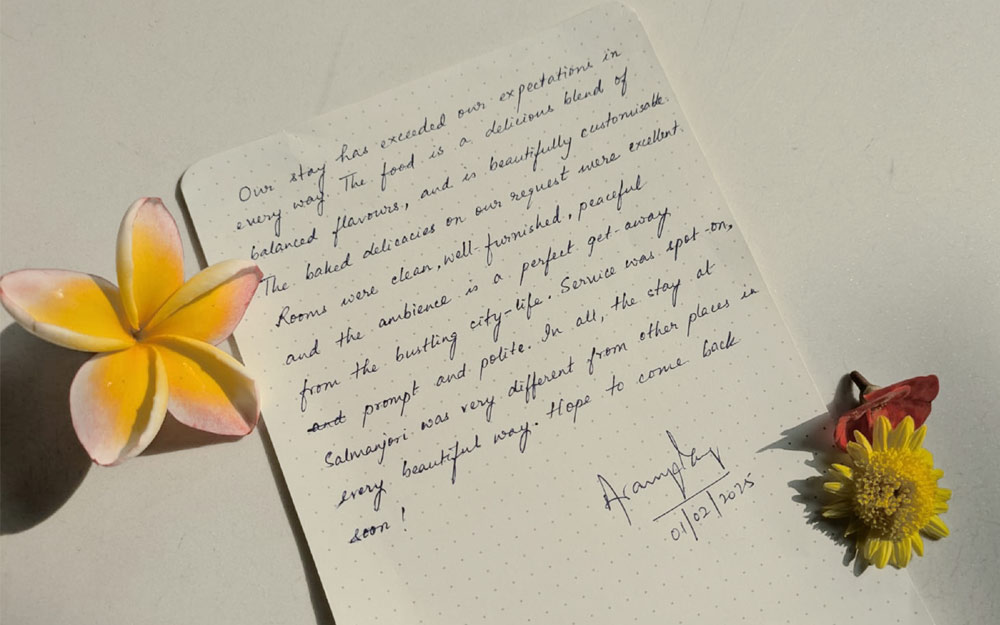 Our stay has exceeded our expectations in
every way. The food is a delicious blend of
balanced flavours, and is beautifully customisable.
The baked delicacies on our request were excellent.
Rooms were clean, well-furnished, peaceful
and the ambience is a perfect get-away
from the bustling city-life. Service was spot-on,
and prompt and polite. In all, the stay at
Salmanjori was very different from other places in
every beautiful way. Hope to come back
soon!
01/02/2025